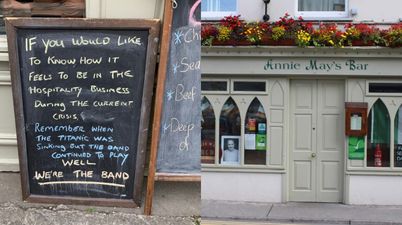 IF YOU WOULD LIKE
TO KNOW HOW IT
FEELS TO BE IN THE
HOSPITALITY BUSINESS
DURING THE CURRENT
CRISIS.
REMEMBER WHEN
THE TITANIC WAS
SINKING BUT THE BAND
CONTINUED TO PLAY
WELL
WE'RE THE BAND
Annie May's Bar